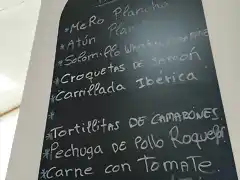 *MeRo Plancha
*Atún Plan
*Solomillo
*CROQUETAS DE JAMÓN
*CARRILLADA IBÉRICA
*
*TORTILLITAS DE CAMARONES.
*Pechuga DE Pollo Roquefor
*CARNE CON TOMATE